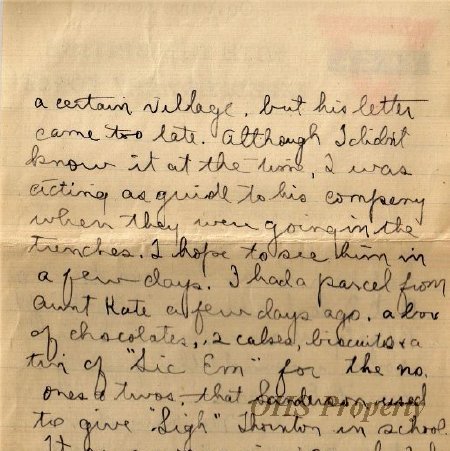 a certain village, but his letter
came too late. Although I didn't
know it at the time, I was
acting as guide to his company
when they were going in the
trenches. I hope to see him in
a few days. I had a parcel from
Aunt Kate a few days ago, a box
of chocolates, 2 cakes, biscuits & a
tin of "Sic Em" for the no.
ones & twos - that Sanderson used
to give "Sigh" Thornton in school.
OHS Property